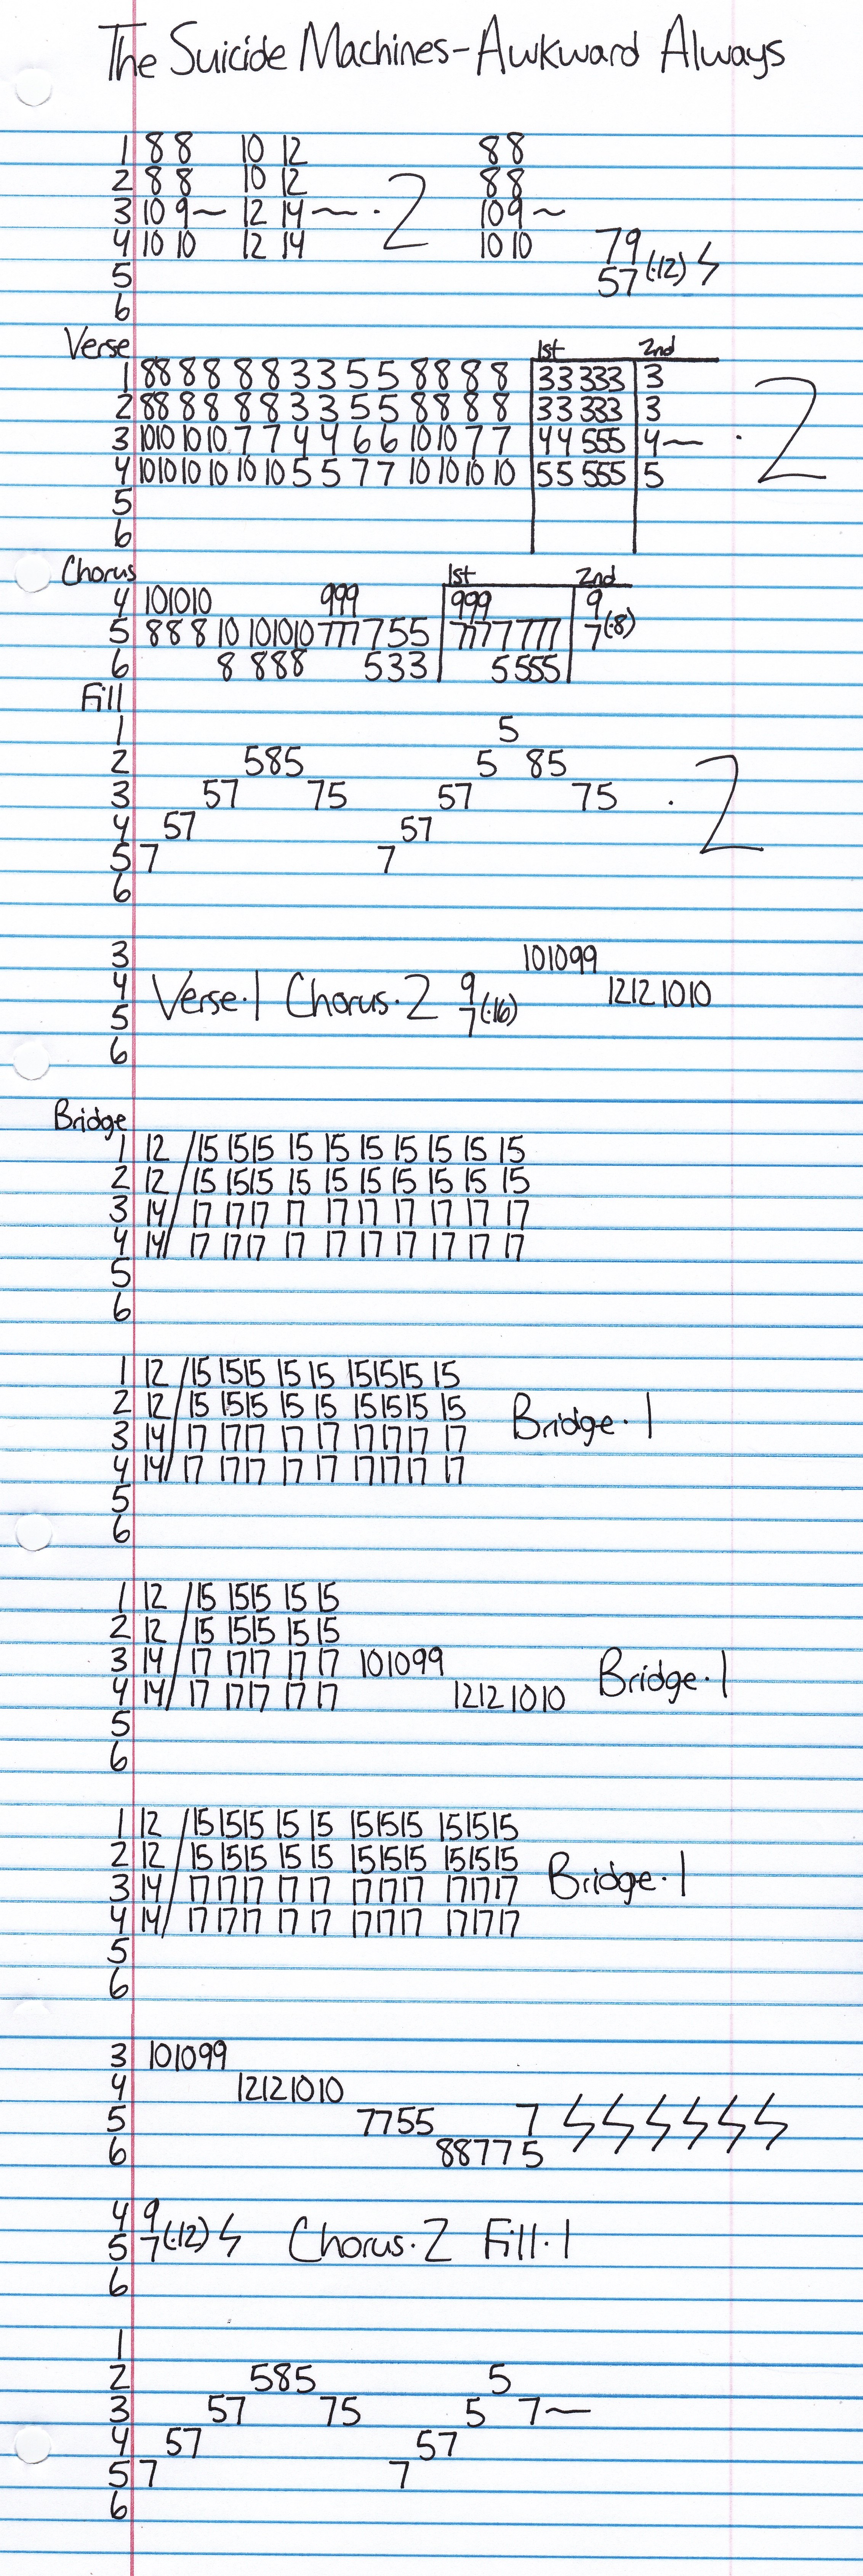 The Suicide Machines-Awkward Always
1 8 8 10 12 8 8
2 8 8 10 12 8 8
3 10 9~ 12 14~ ·2 10 9~
4 10 10 12 14 10 10 79
5 57 (·12) ϟ
6
Verse 1st 2nd
1 88 8 8 8 8 3 3 5 5 8 8 8 8 33 333 3
2 88 8 8 8 8 3 3 5 5 8 8 8 8 33 333 3
3 1010 10 10 7 7 4 4 6 6 10 10 7 7 44 555 4~ ·2
4 1010 10 10 10 10 5 5 7 7 10 10 10 10 55 555 5
5
6
Chorus 1st 2nd
4 101010 999 999 9
5 8 8 8 10 101010 777 755 777 7777 7 (·8)
6 8 888 533 5555
Fill
1 5
2 585 5 85
3 57 75 57 75 ·2
4 57 57
5 7 7
6
3 101099
4 Verse·1 Chorus·2 9 12121010
5 7 (·16)
6
Bridge
1 12 / 15 1515 15 15 15 15 15 15 15
2 12 / 15 1515 15 15 15 15 15 15 15
3 14 / 17 1717 17 17 17 17 17 17 17
4 14 / 17 1717 17 17 17 17 17 17 17
5
6
1 12 / 15 1515 15 15 151515 15
2 12 / 15 1515 15 15 151515 15 Bridge·1
3 14 / 17 1717 17 17 171717 17
4 14 / 17 1717 17 17 171717 17
5
6
1 12 / 15 1515 15 15
2 12 / 15 1515 15 15
3 14 / 17 1717 17 17 101099 Bridge·1
4 14 / 17 1717 17 17 12121010
5
6
1 12 / 151515 15 15 151515 151515
2 12 / 151515 15 15 151515 151515 Bridge·1
3 14 / 171717 17 17 171717 171717
4 14 / 171717 17 17 171717 171717
5
6
3 101099
4 12121010
5 7755 7 ϟ ϟ ϟ ϟ ϟ ϟ
6 88775
4 9
5 7 (·12) ϟ Chorus·2 Fill·1
6
1
2 585 5
3 57 75 5 7~
4 57 57
5 7 7
6